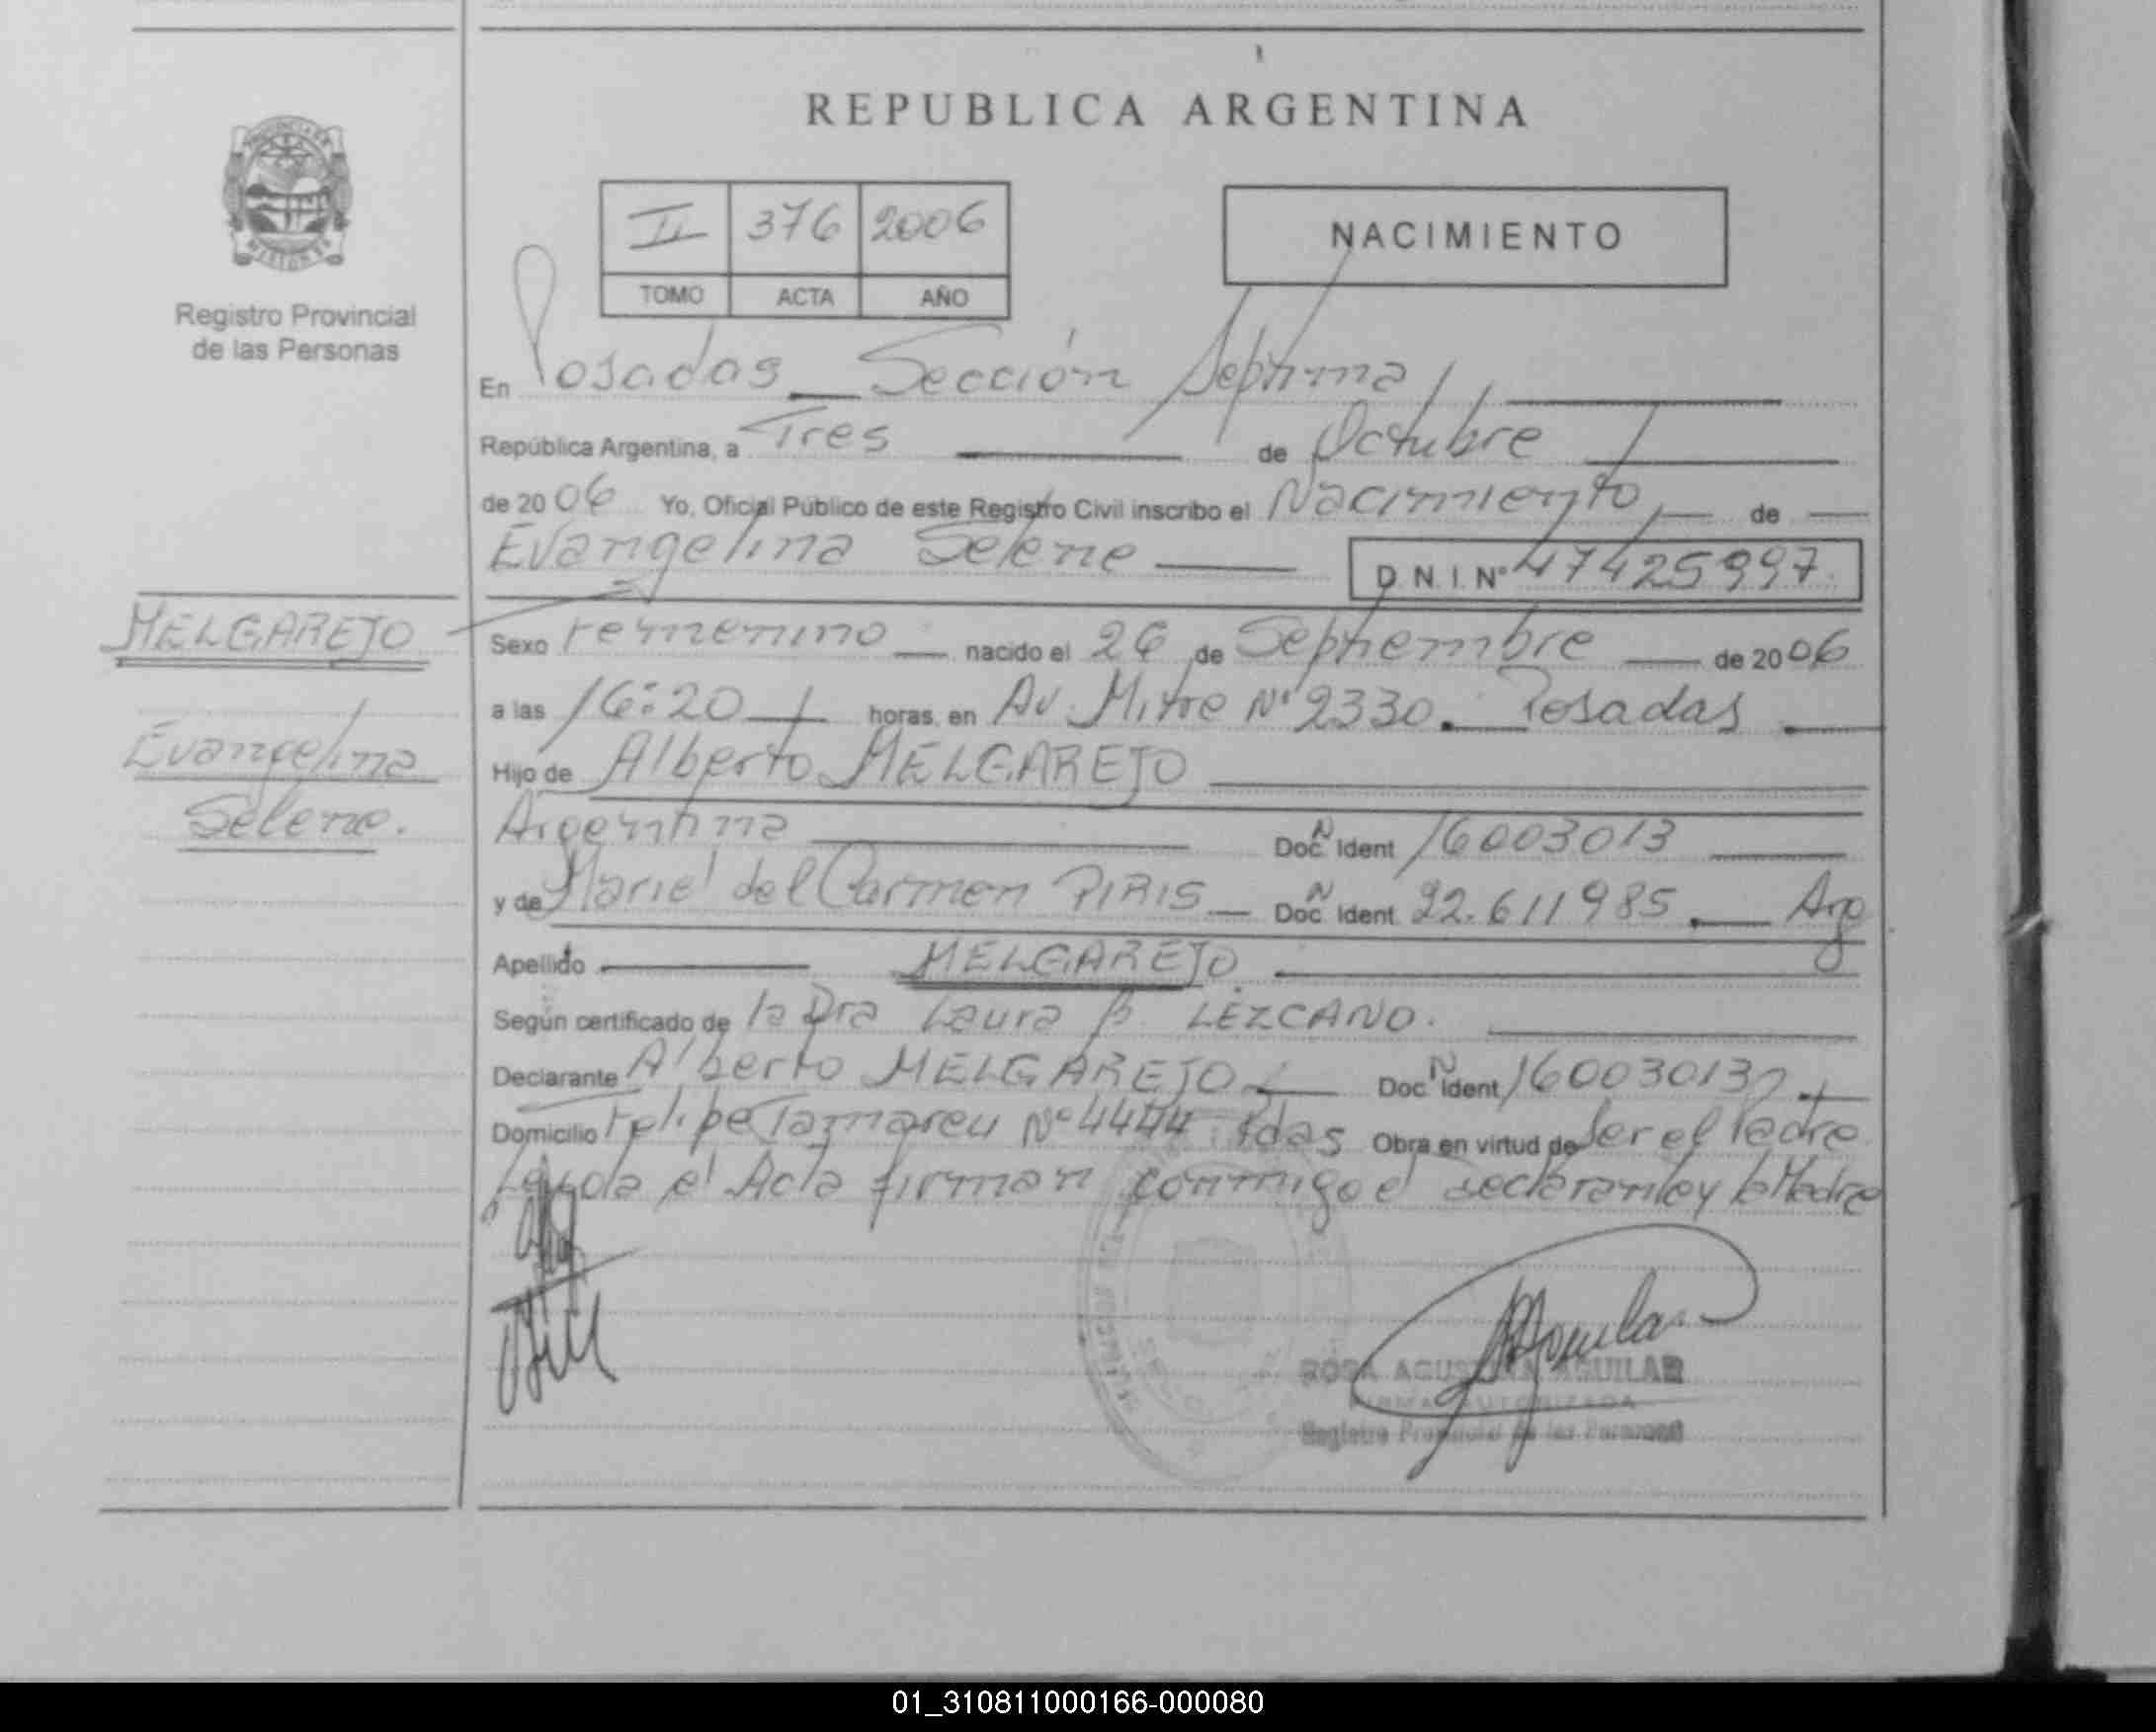 REPUBLICA ARGENTINA
II 376 2006
TOMO ACTA AÑO
NACIMIENTO
Registro Provincial
de las Personas
En Posadas Sección Septima
República Argentina, a Tres de Octubre
de 2006 Yo, Oficial Público de este Registro Civil inscribo el Nacimiento de
Evangelina Selene D.N.I. Nº 47425997
MELGAREJO
Evangelina
Selene.
Sexo Femenino nacido el 26 de Septiembre de 2006
a las 16:20 horas, en Av. Mitre Nº 2330. Posadas
Hijo de Alberto MELGAREJO
Argentina Doc. N Ident 16003013
y de Mariel del Carmen PIRIS Doc. N Ident 22.611985. Arg
Apellido MELGAREJO
Según certificado de la Dra Laura B. LEZCANO.
Declarante Alberto MELGAREJO Doc. N Ident 16003013
Domicilio Felipe Nº 4444 Pdas Obra en virtud de Ser el Padre
Leída el Acta firman conmigo el declarante y la Madre
ROSA AGUSTINA AGUILAR
FIRMA AUTORIZADA
Registro Provincial de las Personas
01_310811000166-000080